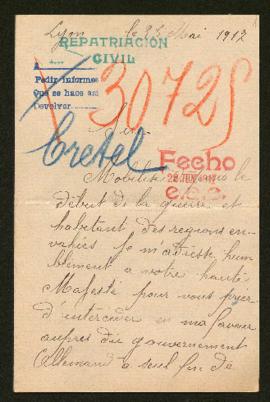 Lyon le 25 Mai 1917
REPATRIACIÓN
CIVIL
Pedir informes
Que se hace
Devolver
30725
Cretel
Fecho
Sire
Mobilisé depuis le
début de la guerre et
habitant des regions en-
vahies je m'adresse hum-
blement a votre haute
Majesté pour vous prier
d'intercéder en ma faveur
aupres du gouvernement
Allemand a seul fin de